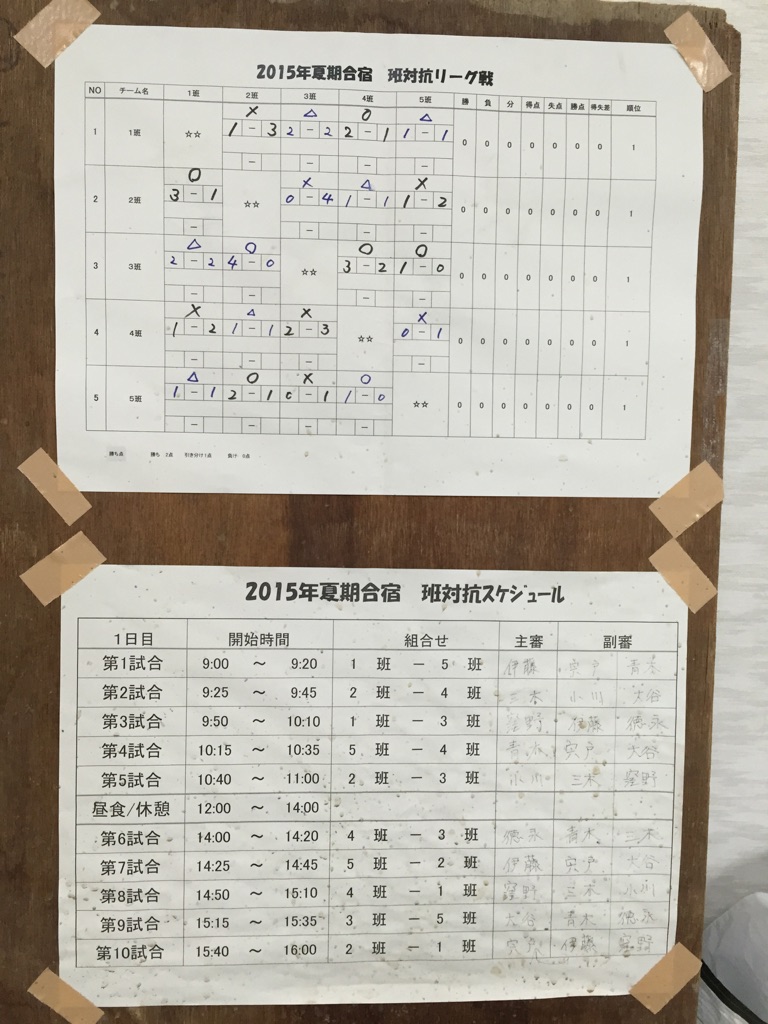 2015年夏期合宿　班対抗リーグ戦
NO チーム名 1班 2班 3班 4班 5班 勝 負 分 得点 失点 勝点 得失差 順位
× △ ○ △
1 1班 ☆☆ 1 - 3 2 - 2 2 - 1 1 - 1 0 0 0 0 0 0 0 1
- - - -
○ × △ ×
2 2班 3 - 1 ☆☆ 0 - 4 1 - 1 1 - 2 0 0 0 0 0 0 0 1
- - - -
△ ○ ○ ○
3 3班 2 - 2 4 - 0 ☆☆ 3 - 2 1 - 0 0 0 0 0 0 0 0 1
- - - -
× △ × ×
4 4班 1 - 2 1 - 1 2 - 3 ☆☆ 0 - 1 0 0 0 0 0 0 0 1
- - - -
△ ○ × ○
5 5班 1 - 1 2 - 1 0 - 1 1 - 0 ☆☆ 0 0 0 0 0 0 0 1
- - - -
勝ち点 勝ち 2点 引き分け1点 負け 0点
2015年夏期合宿　班対抗スケジュール
1日目 開始時間 組合せ 主審 副審
第1試合 9:00 ～ 9:20 1 班 － 5 班 伊藤 宍戸 青木
第2試合 9:25 ～ 9:45 2 班 － 4 班 三木 小川 大谷
第3試合 9:50 ～ 10:10 1 班 － 3 班 窪野 伊藤 徳永
第4試合 10:15 ～ 10:35 5 班 － 4 班 青木 宍戸 大谷
第5試合 10:40 ～ 11:00 2 班 － 3 班 小川 三木 窪野
昼食/休憩 12:00 ～ 14:00
第6試合 14:00 ～ 14:20 4 班 － 3 班 徳永 青木 三木
第7試合 14:25 ～ 14:45 5 班 － 2 班 伊藤 宍戸 大谷
第8試合 14:50 ～ 15:10 4 班 － 1 班 窪野 三木 小川
第9試合 15:15 ～ 15:35 3 班 － 5 班 大谷 青木 徳永
第10試合 15:40 ～ 16:00 2 班 － 1 班 宍戸 伊藤 窪野